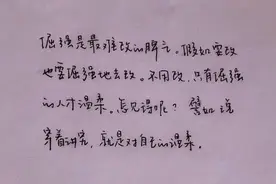 倔强是最难改的脾气。假如要改
也要倔强地去改。不用改，只有倔强
的人才温柔。怎见得呢？譬如说
穿着讲究，就是对自己的温柔。